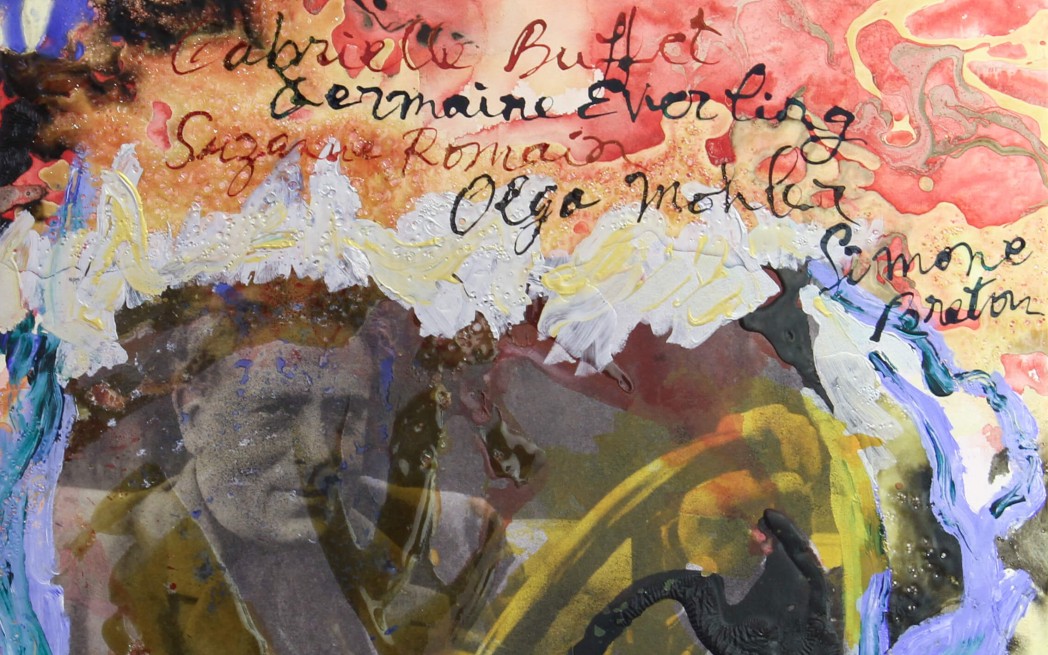 Gabrielle Buffet
Germaine Everling
Suzanne Romain
Olga Mohler
Simone
Breton